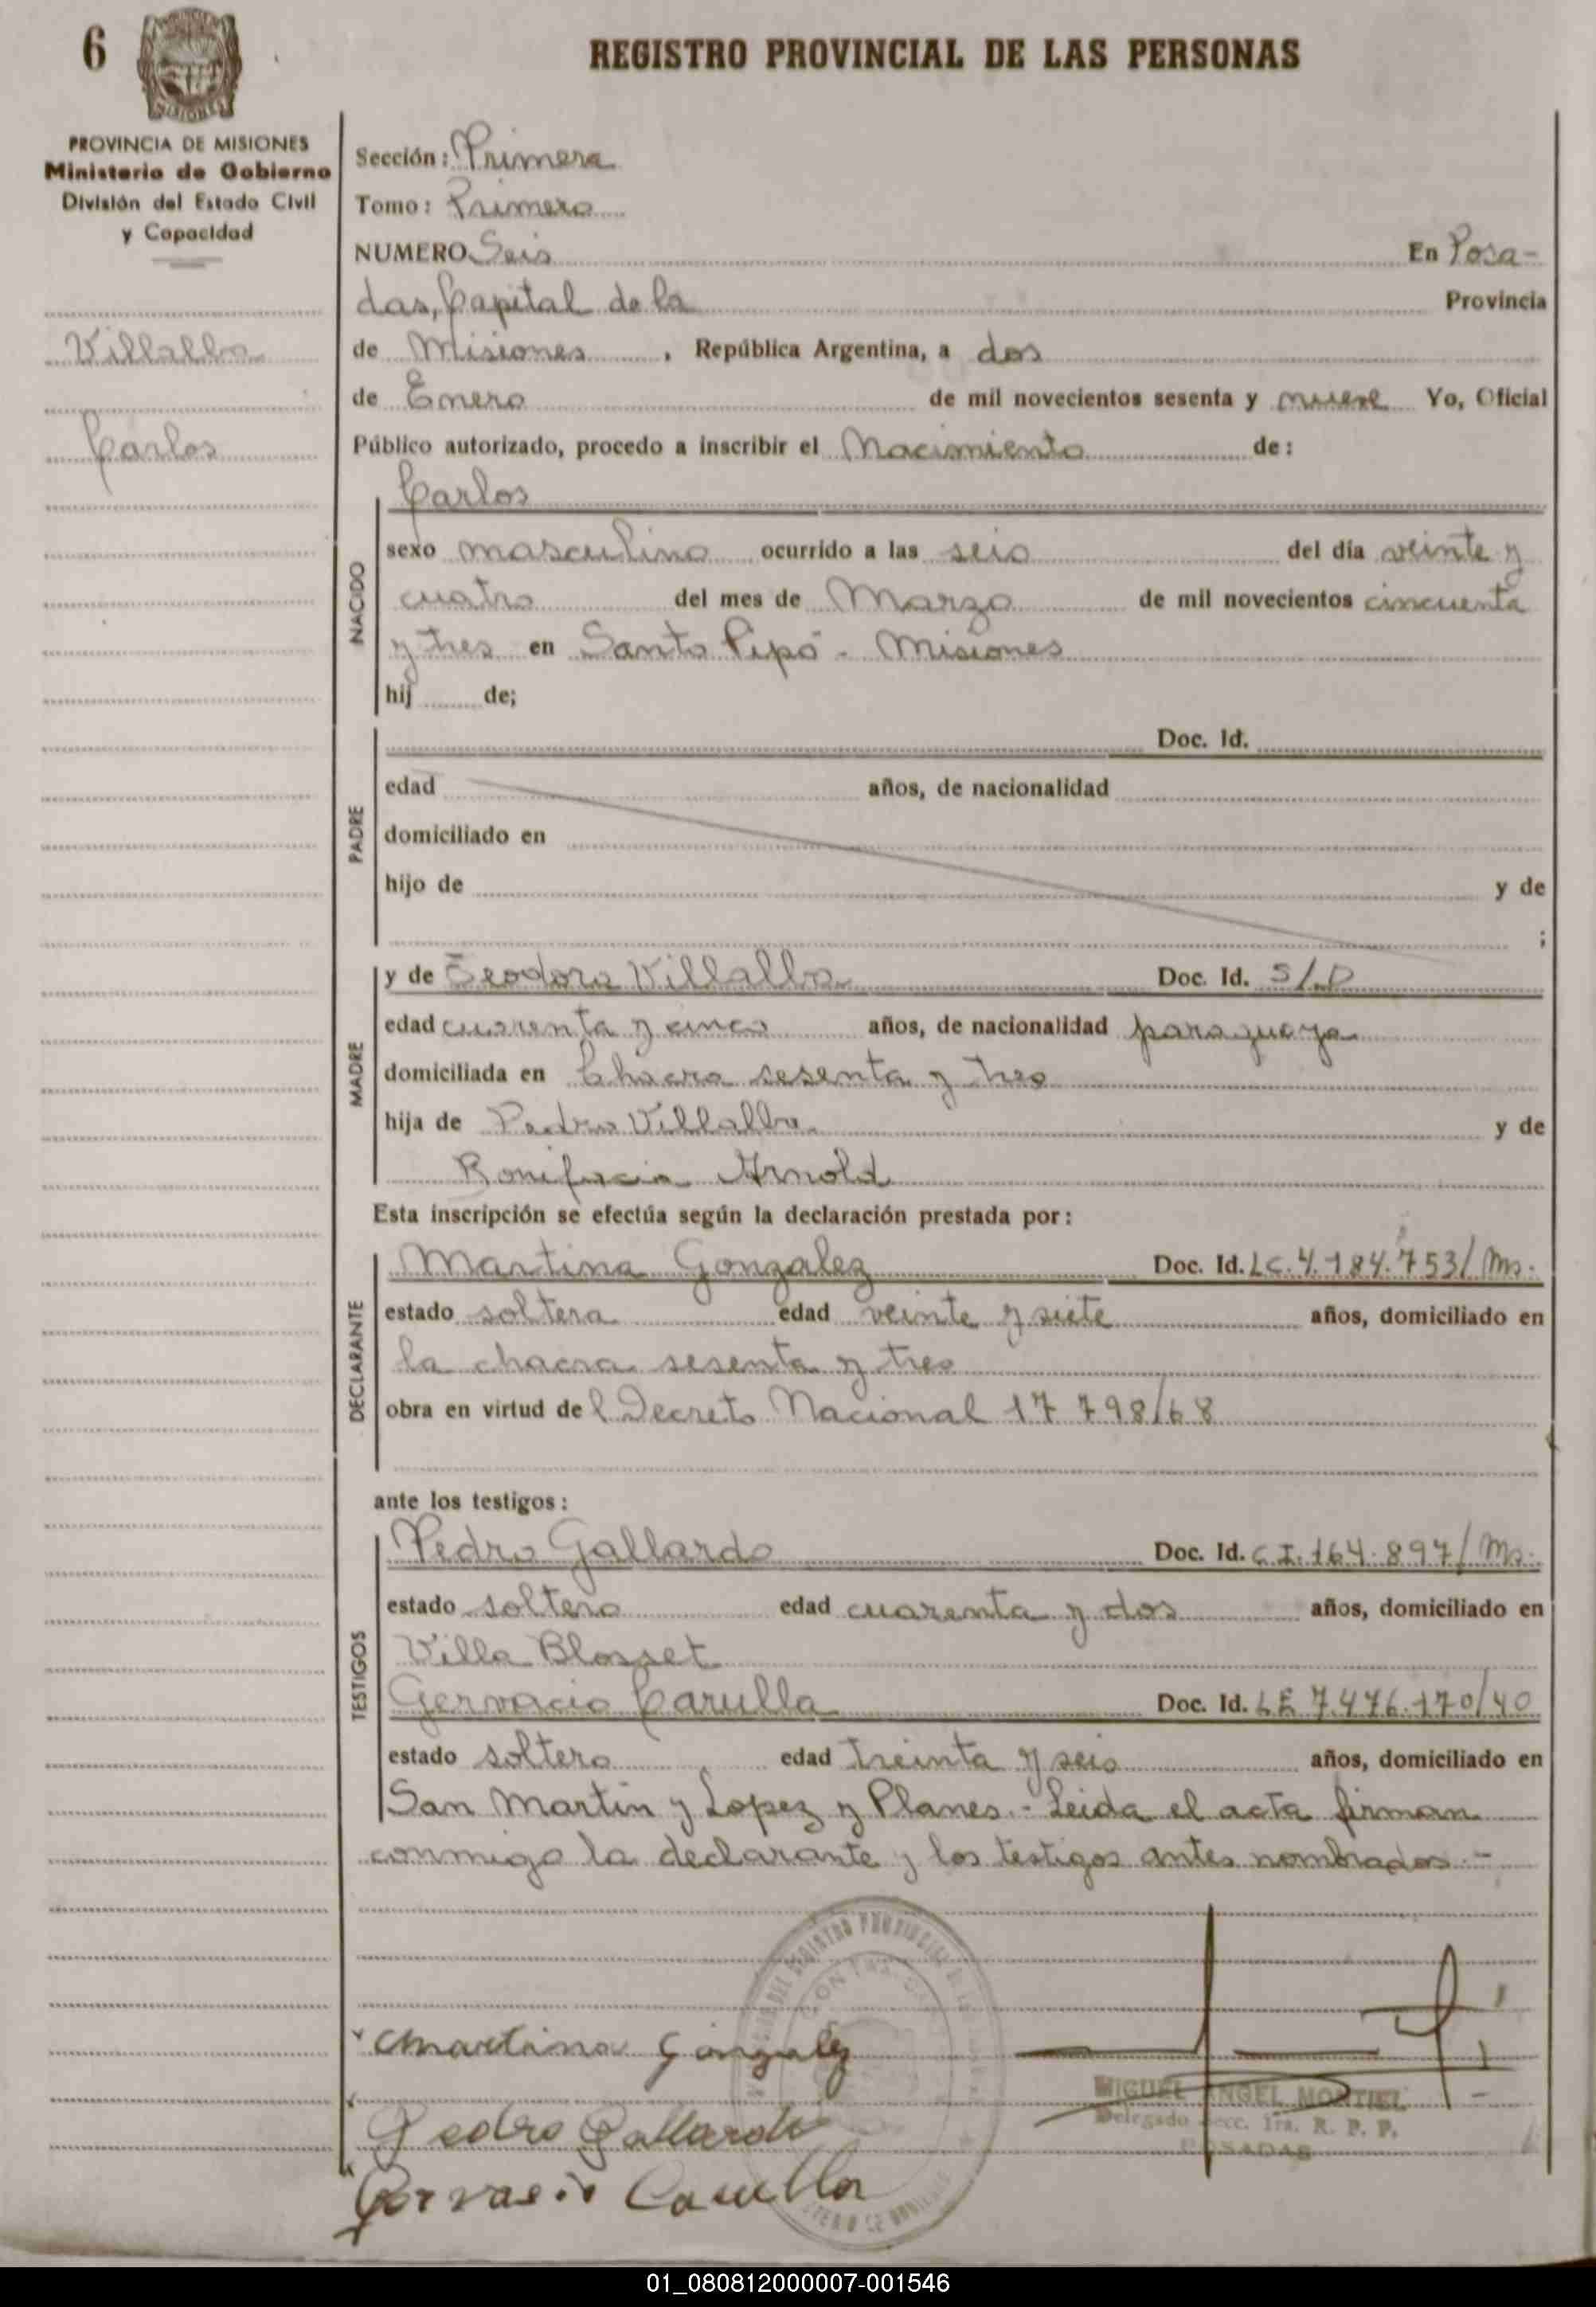 6
REGISTRO PROVINCIAL DE LAS PERSONAS
MISIONES
PROVINCIA DE MISIONES
Ministerio de Gobierno
División del Estado Civil
y Capacidad
Villalba
Carlos
Sección: Primera
Tomo: Primero
NUMERO Seis En Posa-
das, Capital de la Provincia
de Misiones, República Argentina, a dos
de Enero de mil novecientos sesenta y nueve Yo, Oficial
Público autorizado, procedo a inscribir el Nacimiento de:
NACIDO
Carlos
sexo masculino ocurrido a las seis del día veinte y
cuatro del mes de Marzo de mil novecientos cincuenta
y tres en Santo Pipó - Misiones
hij de;
PADRE
Doc. Id.
edad años, de nacionalidad
domiciliado en
hijo de y de
;
MADRE
y de Teodora Villalba Doc. Id. S/D
edad cuarenta y cinco años, de nacionalidad paraguaya
domiciliada en Chacra sesenta y tres
hija de Pedro Villalba y de
Bonifacia Arnold
Esta inscripción se efectúa según la declaración prestada por:
DECLARANTE
Martina Gonzalez Doc. Id. LC. 4.184.753/Ms.
estado soltera edad veinte y siete años, domiciliado en
la chacra sesenta y tres
obra en virtud del Decreto Nacional 17798/68
ante los testigos:
TESTIGOS
Pedro Gallardo Doc. Id. C.I. 164.897/Ms.
estado soltero edad cuarenta y dos años, domiciliado en
Villa Blosset
Gervacio Carulla Doc. Id. LE 7.476.170/40
estado soltero edad treinta y seis años, domiciliado en
San Martin y Lopez y Planes.- Leida el acta firman
conmigo la declarante y los testigos antes nombrados.-
Martina Gonzalez
Pedro Gallardo
Gervacio Carulla
MIGUEL ANGEL MONTIEL
Delegado Secc. 1ra. R. P. P.
POSADAS
01_080812000007-001546